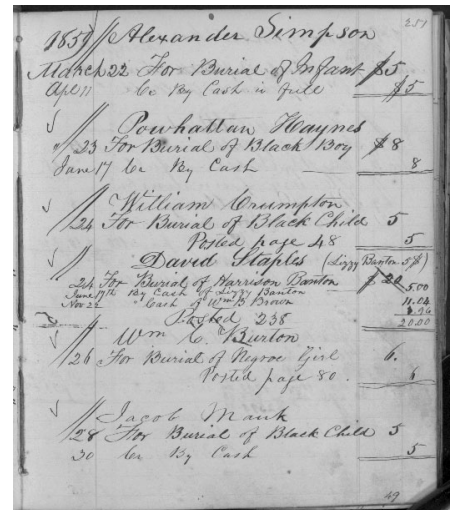 251
1851 // Alexander Simpson
March 22 For Burial of Infant $5
Apl 11 Cr By Cash in full $5
// Powhattan Haynes
" 23 For Burial of Black Boy $8
June 17 Cr By Cash 8
// William Crumpton
24 For Burial of Black Child 5
Posted page 48 5
// David Staples (Lizzy Banton 5$)
24 For Burial of Harrison Banton $20
June 17th By Cash of Lizzy Banton 5.00
Nov 22 " Cash of Wm B Brown 11.04
Posted 238 3.96
20.00
// Wm C. Burton
26 For Burial of Negroe Girl 6.
Posted page 80. 6
// Jacob Mauk
28 For Burial of Black Child 5
30 Cr By Cash 5
49